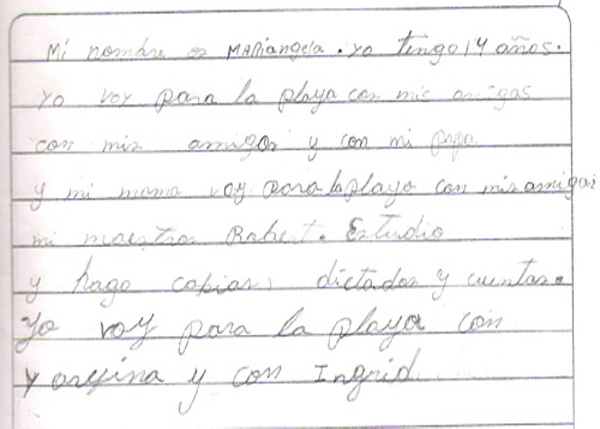 Mi nombre es MARiangela. yo tengo 14 años.
yo voy para la playa con mis amigas
con mis amigos y con mi papa
y mi mama voy para la playa con mis amigas
mi maestros Robert. Estudio
y hago copias, dictados y cuentas.
yo voy para la playa con
y con Ingrid